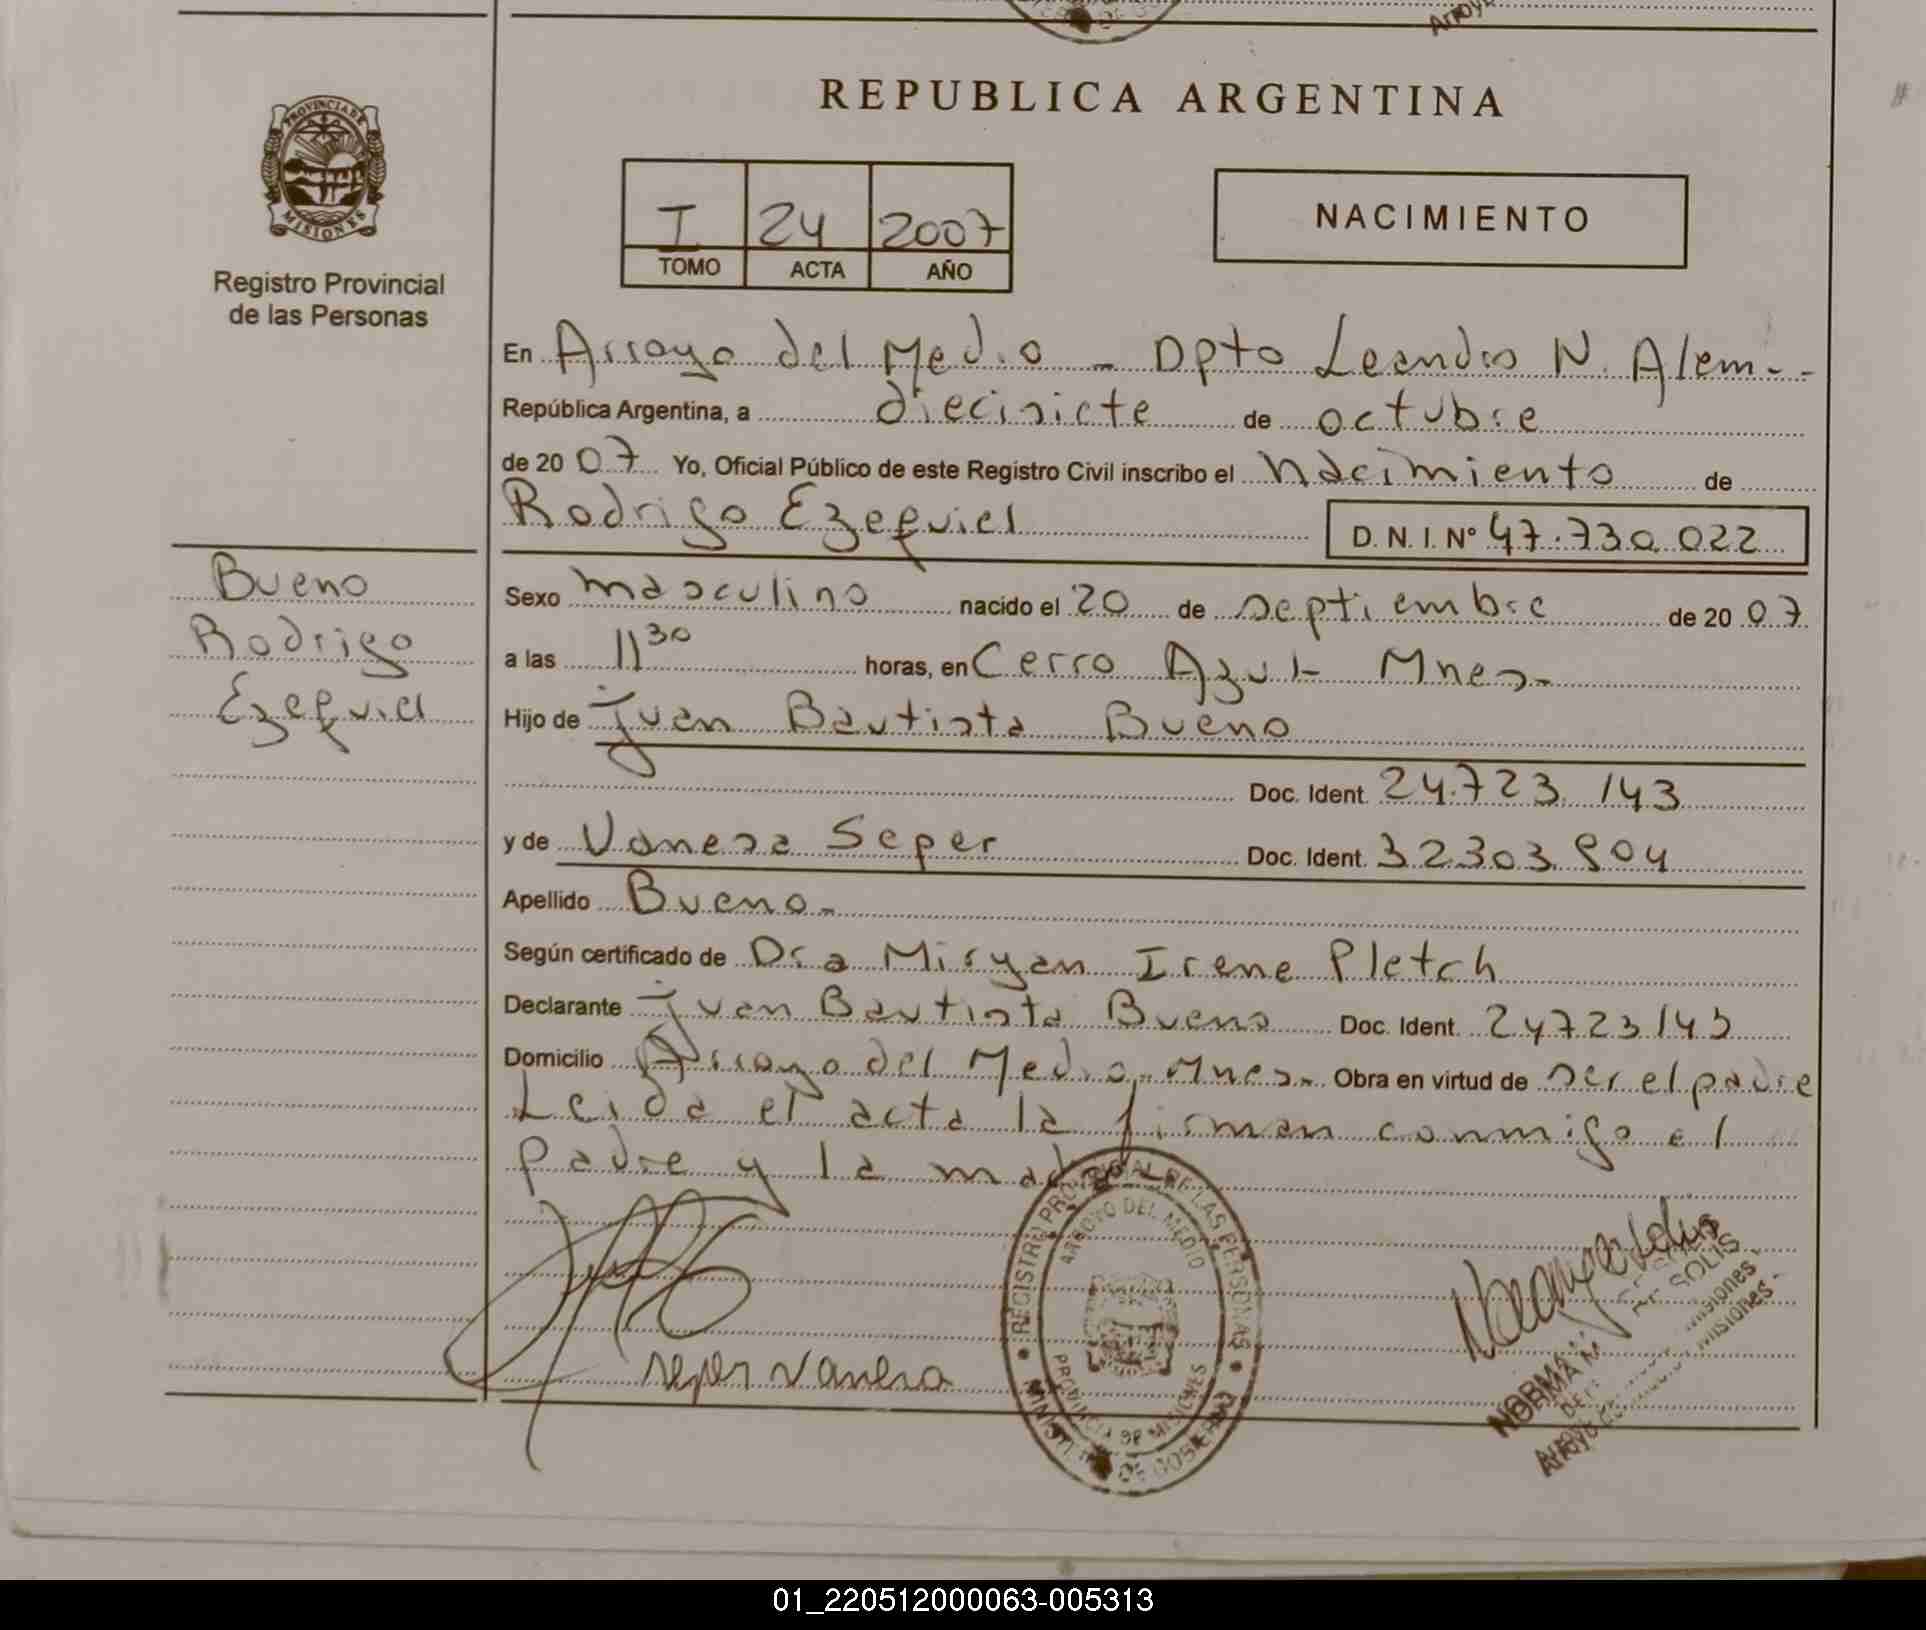 REPUBLICA ARGENTINA
PROVINCIA DE
MISIONES
Registro Provincial
de las Personas
I 24 2007
TOMO ACTA AÑO
NACIMIENTO
En Arroyo del Medio - Dpto Leandro N. Alem--
República Argentina, a diecisiete de octubre
de 2007 Yo, Oficial Público de este Registro Civil inscribo el nacimiento de
Rodrigo Ezequiel D.N.I. Nº 47.730.022
Bueno
Rodrigo
Ezequiel
Sexo masculino nacido el 20 de septiembre de 2007
a las 11 30 horas, en Cerro Azul- Mnes-
Hijo de Juan Bautista Bueno
Doc. Ident. 24.723.143
y de Vanesa Seper Doc. Ident. 32303904
Apellido Bueno-
Según certificado de Dra Miryan Irene Pletch
Declarante Juan Bautista Bueno Doc. Ident. 24723143
Domicilio Arroyo del Medio, Mnes- Obra en virtud de ser el padre
Leida el acta la firman conmigo el
padre y la madre
Seper Vanesa
REGISTRO PROVINCIAL DE LAS PERSONAS
ARROYO DEL MEDIO
PROVINCIA DE MISIONES
MINISTERIO DE GOBIERNO
NORMA
SOLIS
Misiones
01_220512000063-005313